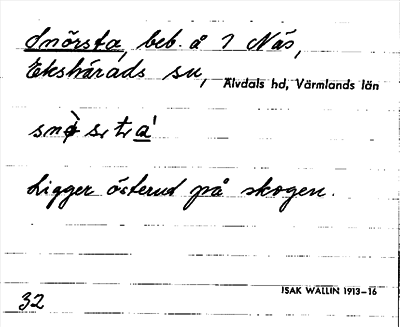 Snörsta, beb. å ? Näs,
Ekshärads sn, Älvdals hd, Värmlands län
Ligger österut på skogen.
ISAK WALLIN 1913–16
32